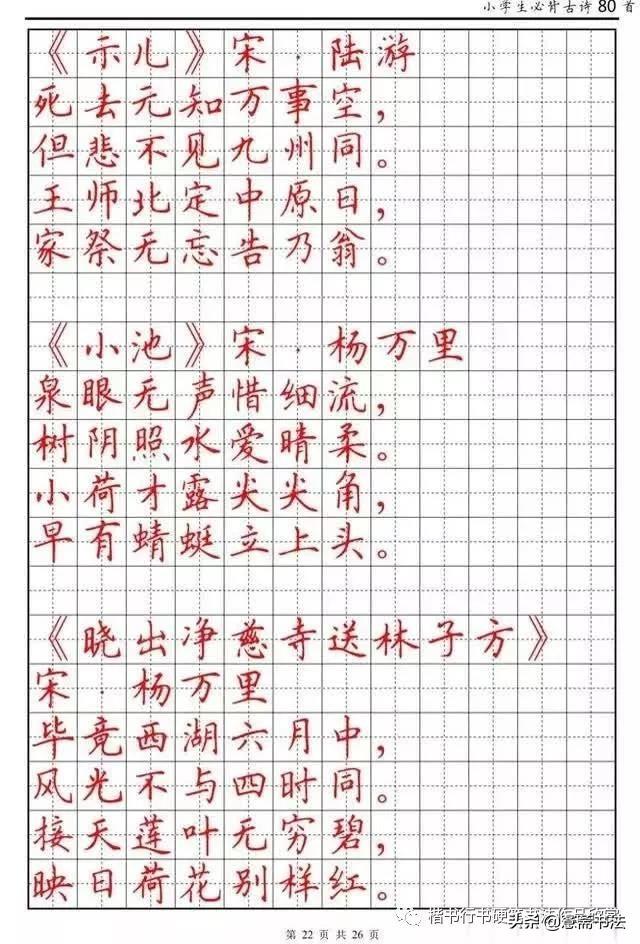 小学生必背古诗 80 首
《示儿》宋·陆游
死去元知万事空，
但悲不见九州同。
王师北定中原日，
家祭无忘告乃翁。
《小池》宋·杨万里
泉眼无声惜细流，
树阴照水爱晴柔。
小荷才露尖尖角，
早有蜻蜓立上头。
《晓出净慈寺送林子方》
宋·杨万里
毕竟西湖六月中，
风光不与四时同。
接天莲叶无穷碧，
映日荷花别样红。
第 22 页 共 26 页
头条@慧斋书法